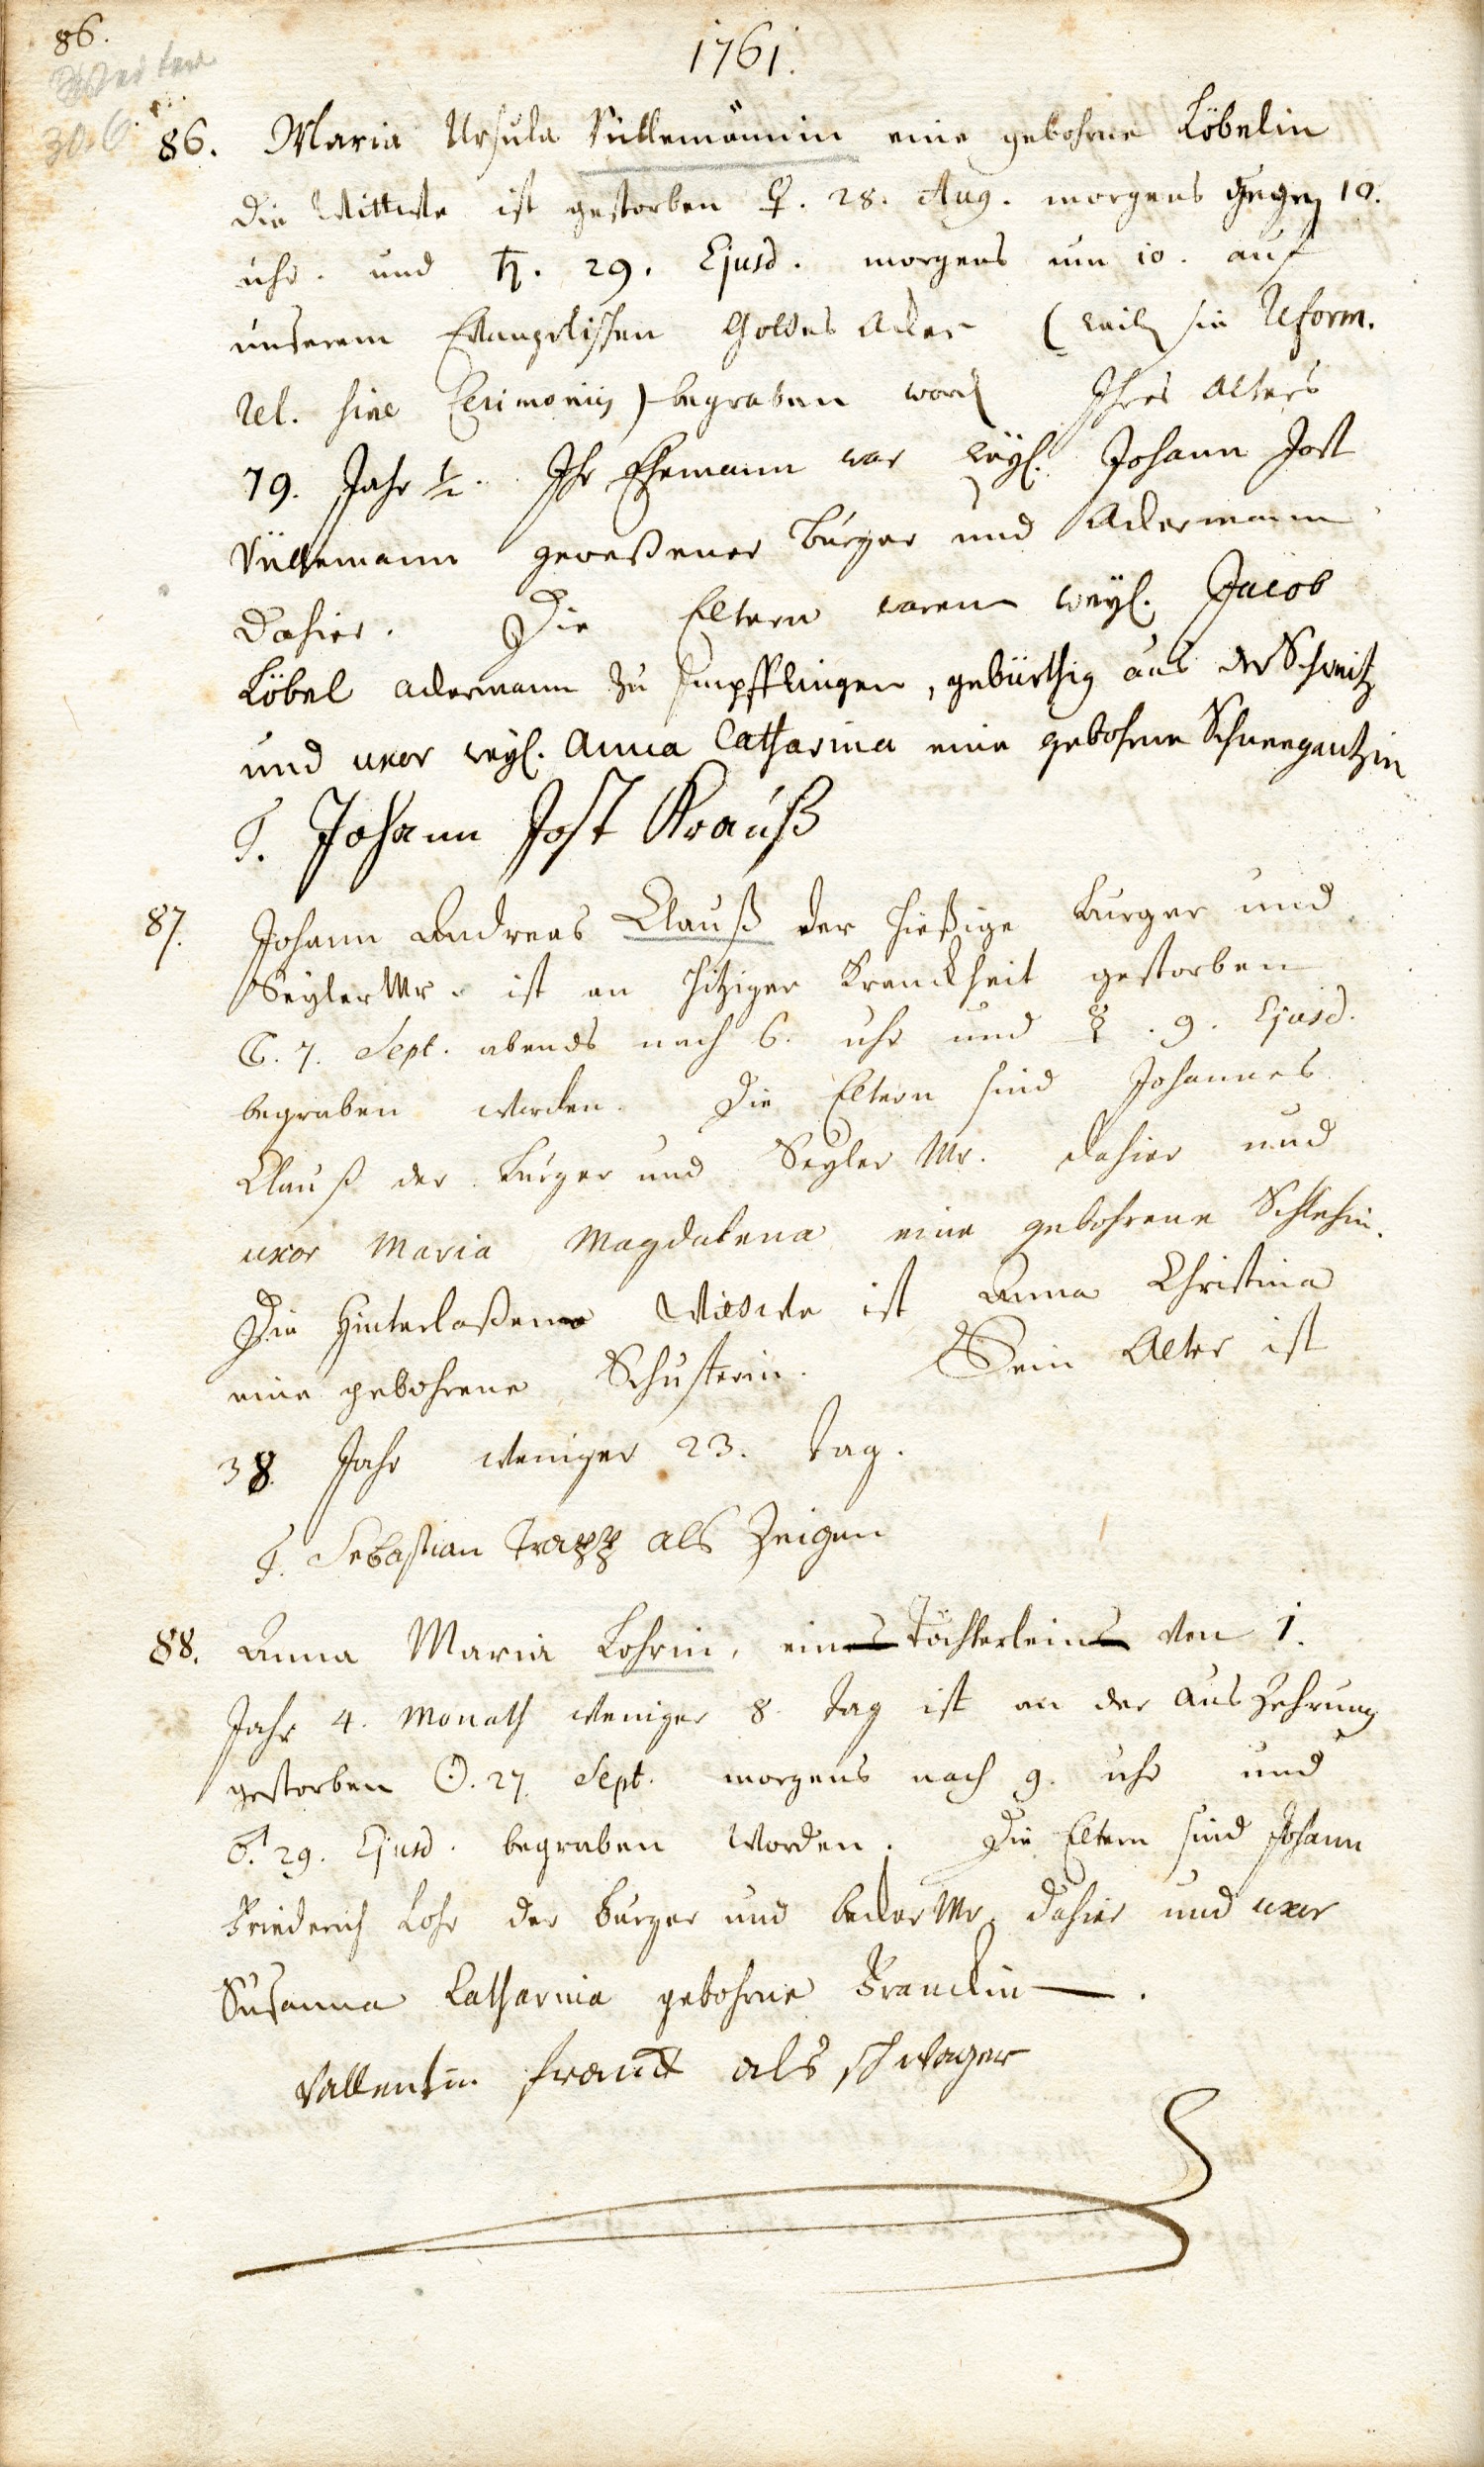 86.
1761.
30.6.
86. Maria Ursula Vüllemännin eine gebohrne Löbelin
die Wittwe ist gestorben ♀. 28. Aug. morgens gegen 10.
uhr. und ♄. 29. Ejusd. morgens um 10. auf
unserem Evangelischen Gottes Acker (weil sie Reform.
Rel. sine Cerimoniis) begraben word Ihres Alters
79. Jahr ½. Ihr Ehemann war weyl. Johann Jost
Vüllemann geweßener Burger und Ackermann
dahier. Die Eltern waren weyl. Jacob
Löbel ackermann zu Impfflingen, gebürthig aus der Schweitz
und uxor weyl. Anna Catharina eine gebohrne Schneegantzin
T. Johann Jost Krauß
87. Johann Andreas Clauß der hießige Burger und
Seyler Mr. ist an hitziger Kranckheit gestorben
☾. 7. Sept. abends nach 6. uhr und ☿. 9. Ejusd.
begraben worden. Die Eltern sind Johannes
Clauß der Burger und Seyler Mr. dahier und
uxor Maria Magdalena eine gebohrene Schlehin.
Die Hinterlaßene Wittwe ist Anna Christina
eine gebohrene Schusterin. Sein Alter ist
38. Jahr weniger 23. tag.
T. Sebastian Trapp als Zeigen
88. Anna Maria Lohrin, eines Töchterleins von 1.
Jahr 4. Monath weniger 8. tag ist an der Auszehrung
gestorben ☉. 27. Sept. morgens nach 9. uhr und
♂. 29. Ejusd. begraben worden. Die Eltern sind Johann
Friederich Lohr der Burger und Becker Mr. dahier und uxor
Susanna Catharina gebohrne Franckin.
Vallentin franck als schwager